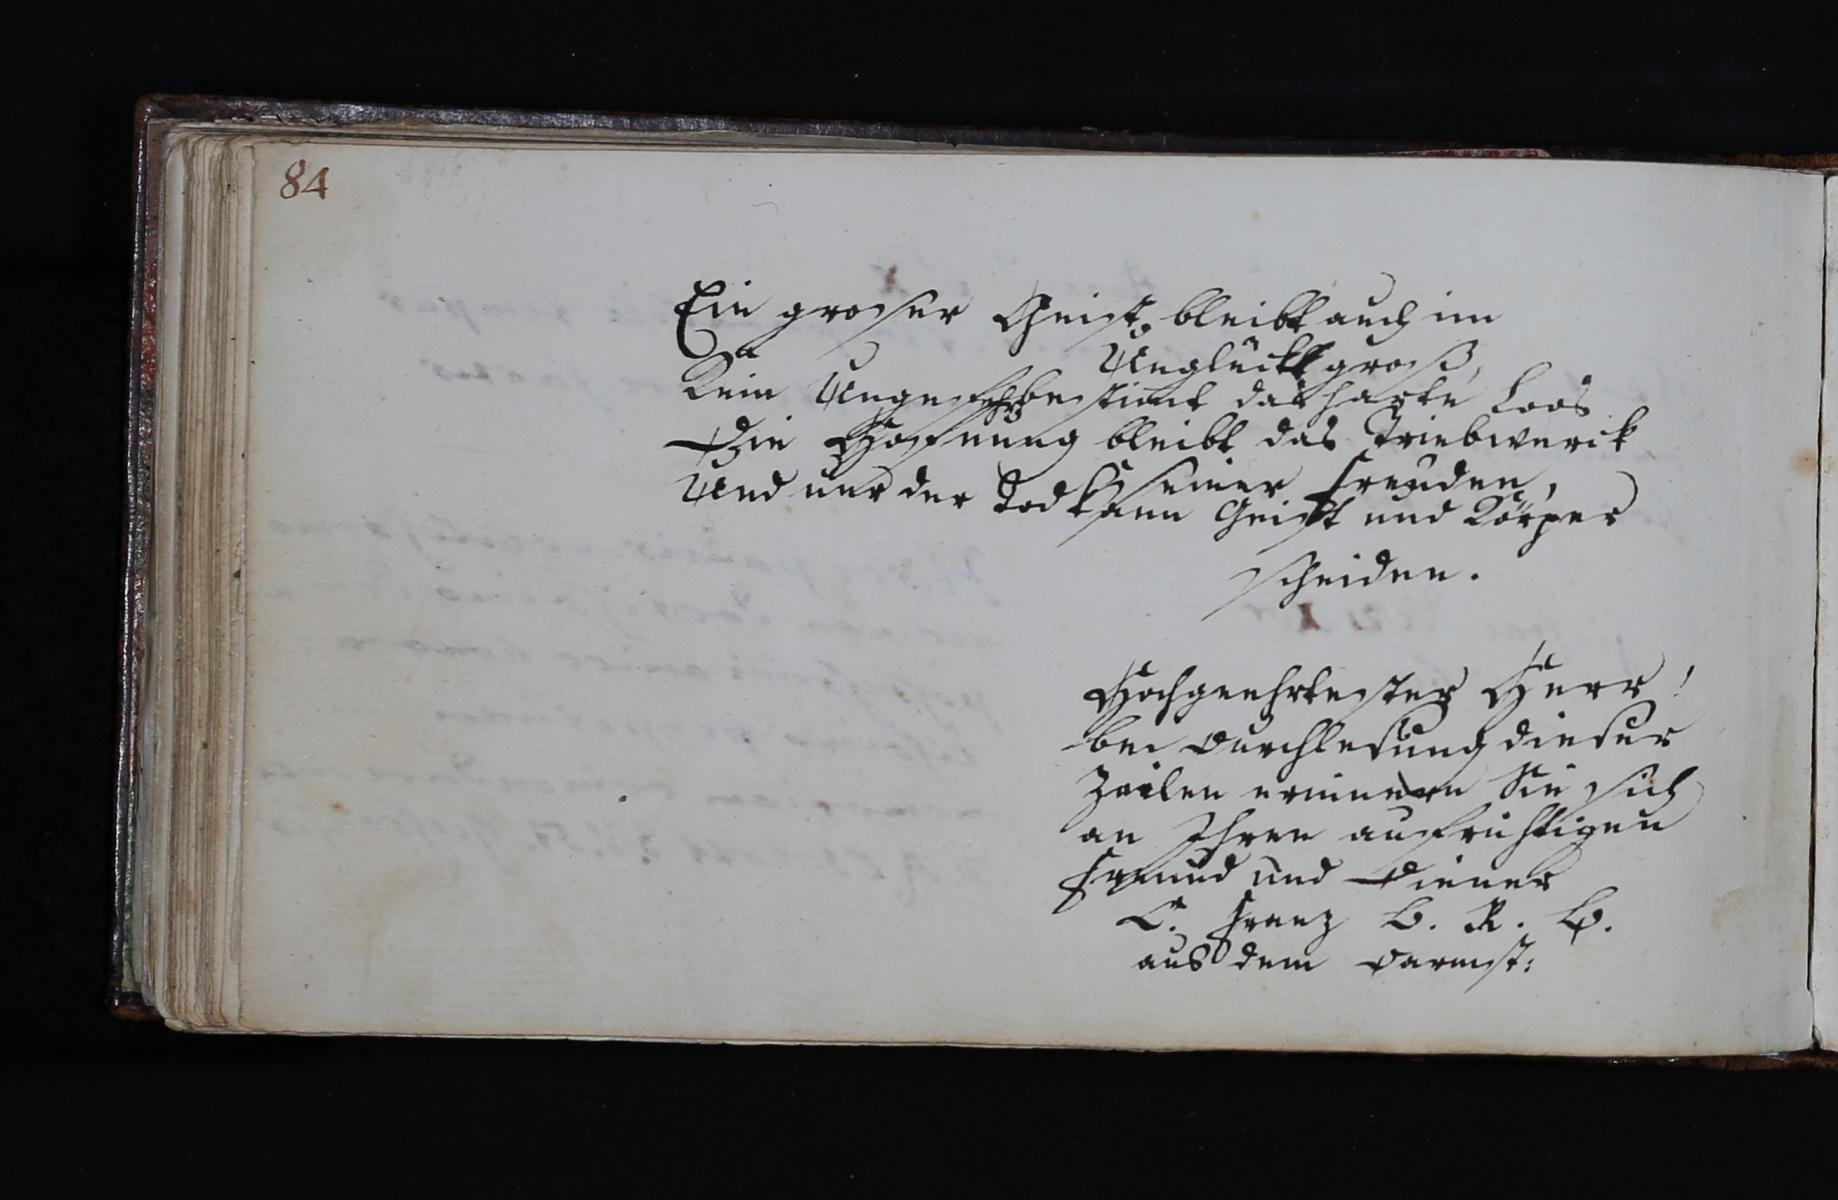 84
Ein groser Geist bleibt auch im
Unglückk groß,
Kein Ungefehr bestimt das harte Loos
Die Hofnung bleibt das Triebwerck
seiner Freuden,
Und nur der Tod kann Geist und Körper
scheiden.
Hochgeehrtester Herr!
bei Durchlesung dieser
Zeilen erinnern Sie sich
an Ihren aufrichtigen
Freund und Diener
C. Franz B. R. B.
aus dem Darmst: